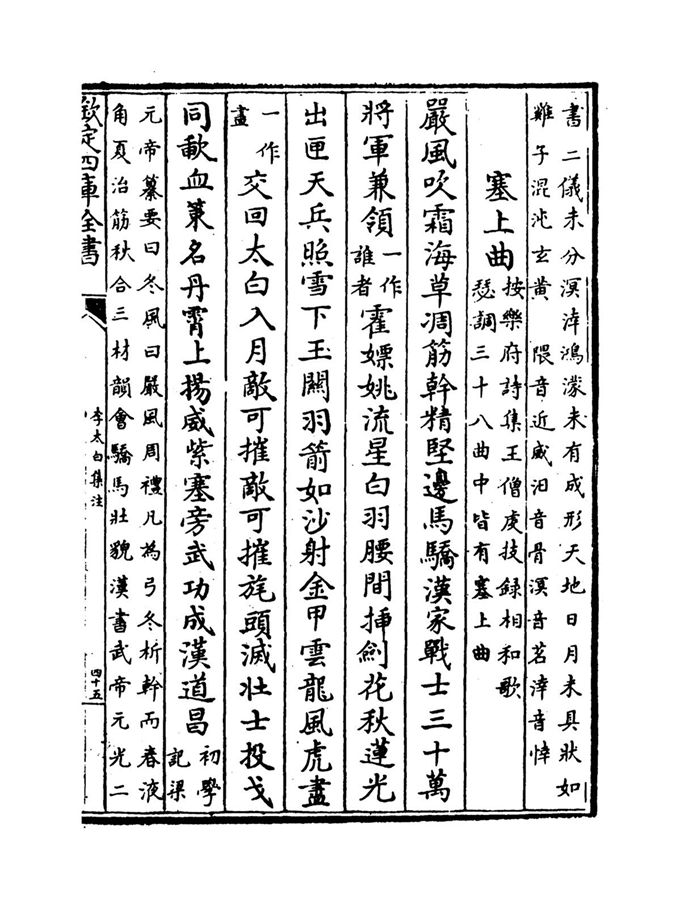 書二儀未分溟涬鴻濛未有成形天地日月未具狀如
雞子混沌玄黄　隈音近威汨音骨溟音茗涬音悻
塞上曲
按樂府詩集王僧䖍技録相和歌
瑟調三十八曲中皆有塞上曲
嚴風吹霜海草凋筋幹精堅邊馬驕漢家戰士三十萬
將軍兼領
一作
誰者
霍嫖姚流星白羽腰間揷劍花秋蓮光
出匣天兵照雪下玉關羽箭如沙射金甲雲龍風虎盡
一作
畫
交回太白入月敵可摧敵可摧旄頭滅壯士投戈
同歃血策名丹霄上揚威紫塞旁武功成漢道昌
初學
記梁
元帝纂要曰冬風曰嚴風周禮凡為弓冬析幹而春液
角夏治筋秋合三材韻會驕馬壯貌漢書武帝元光二
欽定四庫全書
李太白集注
四十五